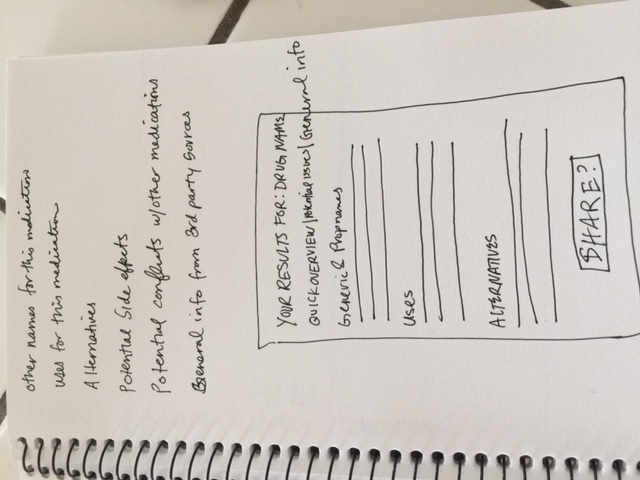 other names for this medication
uses for this medication
Alternatives
Potential Side effects
Potential conflicts w/other medications
General info from 3rd party Sources
YOUR RESULTS FOR: DRUG NAME
QUICK OVERVIEW | Potential issues | General info
Generic & Propnames
Uses
ALTERNATIVES
SHARE?